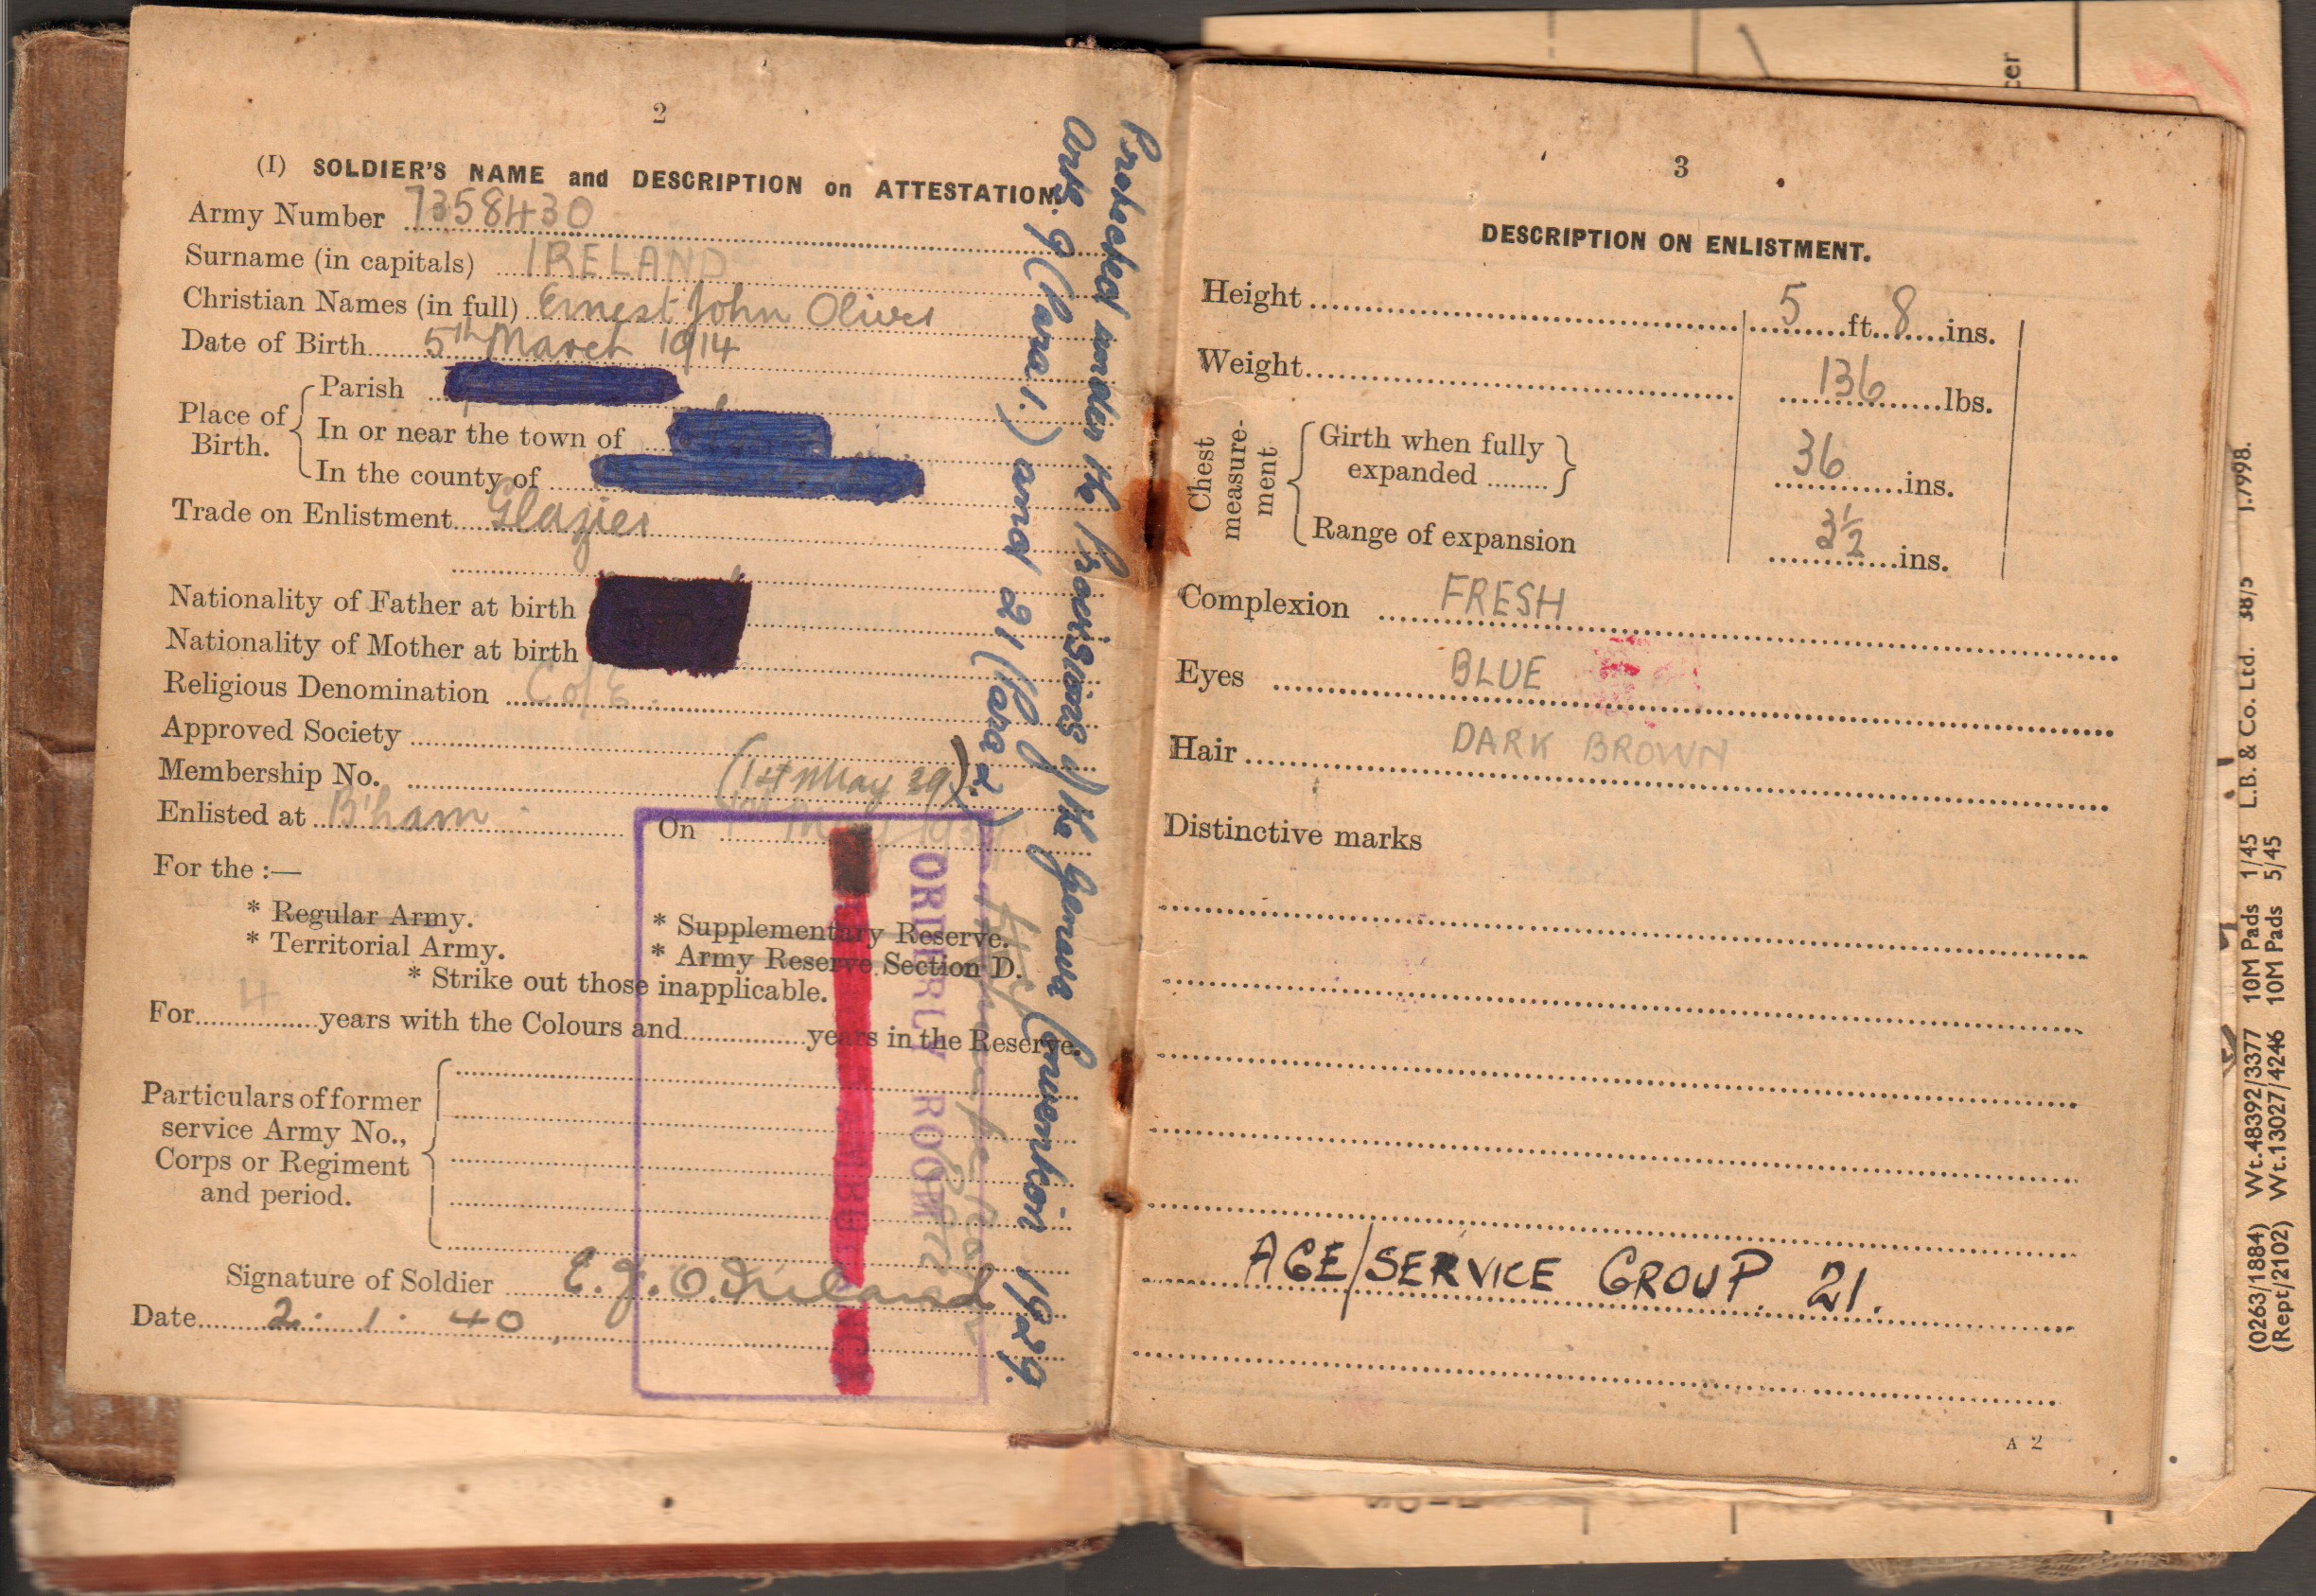 2
(I) SOLDIER'S NAME and DESCRIPTION on ATTESTATION.
Army Number 7358430
Surname (in capitals) IRELAND
Christian Names (in full) Ernest John Oliver
Date of Birth 5th March 1914
Place of Birth.
Parish
In or near the town of
In the county of
Trade on Enlistment Glazier
Nationality of Father at birth
Nationality of Mother at birth
Religious Denomination C of E.
Approved Society
Membership No.
(1st May 39)
Enlisted at B'ham On
For the :—
* Regular Army. * Supplementary Reserve.
* Territorial Army. * Army Reserve Section D.
* Strike out those inapplicable.
For 4 years with the Colours and years in the Reserve.
Particulars of former
service Army No.,
Corps or Regiment
and period.
Signature of Soldier E. J. O. Ireland
Date 2. 1. 40
ORDERLY ROOM
Protected under the Provisions of the Geneva Convention 1929.
Arts. 9 (Para 1.) and 21 (Para 2.)
3
DESCRIPTION ON ENLISTMENT.
Height 5 ft. 8 ins.
Weight 136 lbs.
Chest measure-ment
Girth when fully
expanded 36 ins.
Range of expansion 3½ ins.
Complexion FRESH
Eyes BLUE
Hair DARK BROWN
Distinctive marks
AGE/SERVICE GROUP. 21.
A 2
(0263/1884) Wt.48392/3377 10M Pads 1/45 L.B. & Co. Ltd. 38/5 J.7998.
(Rept/2102) Wt.13027/4246 10M Pads 5/45